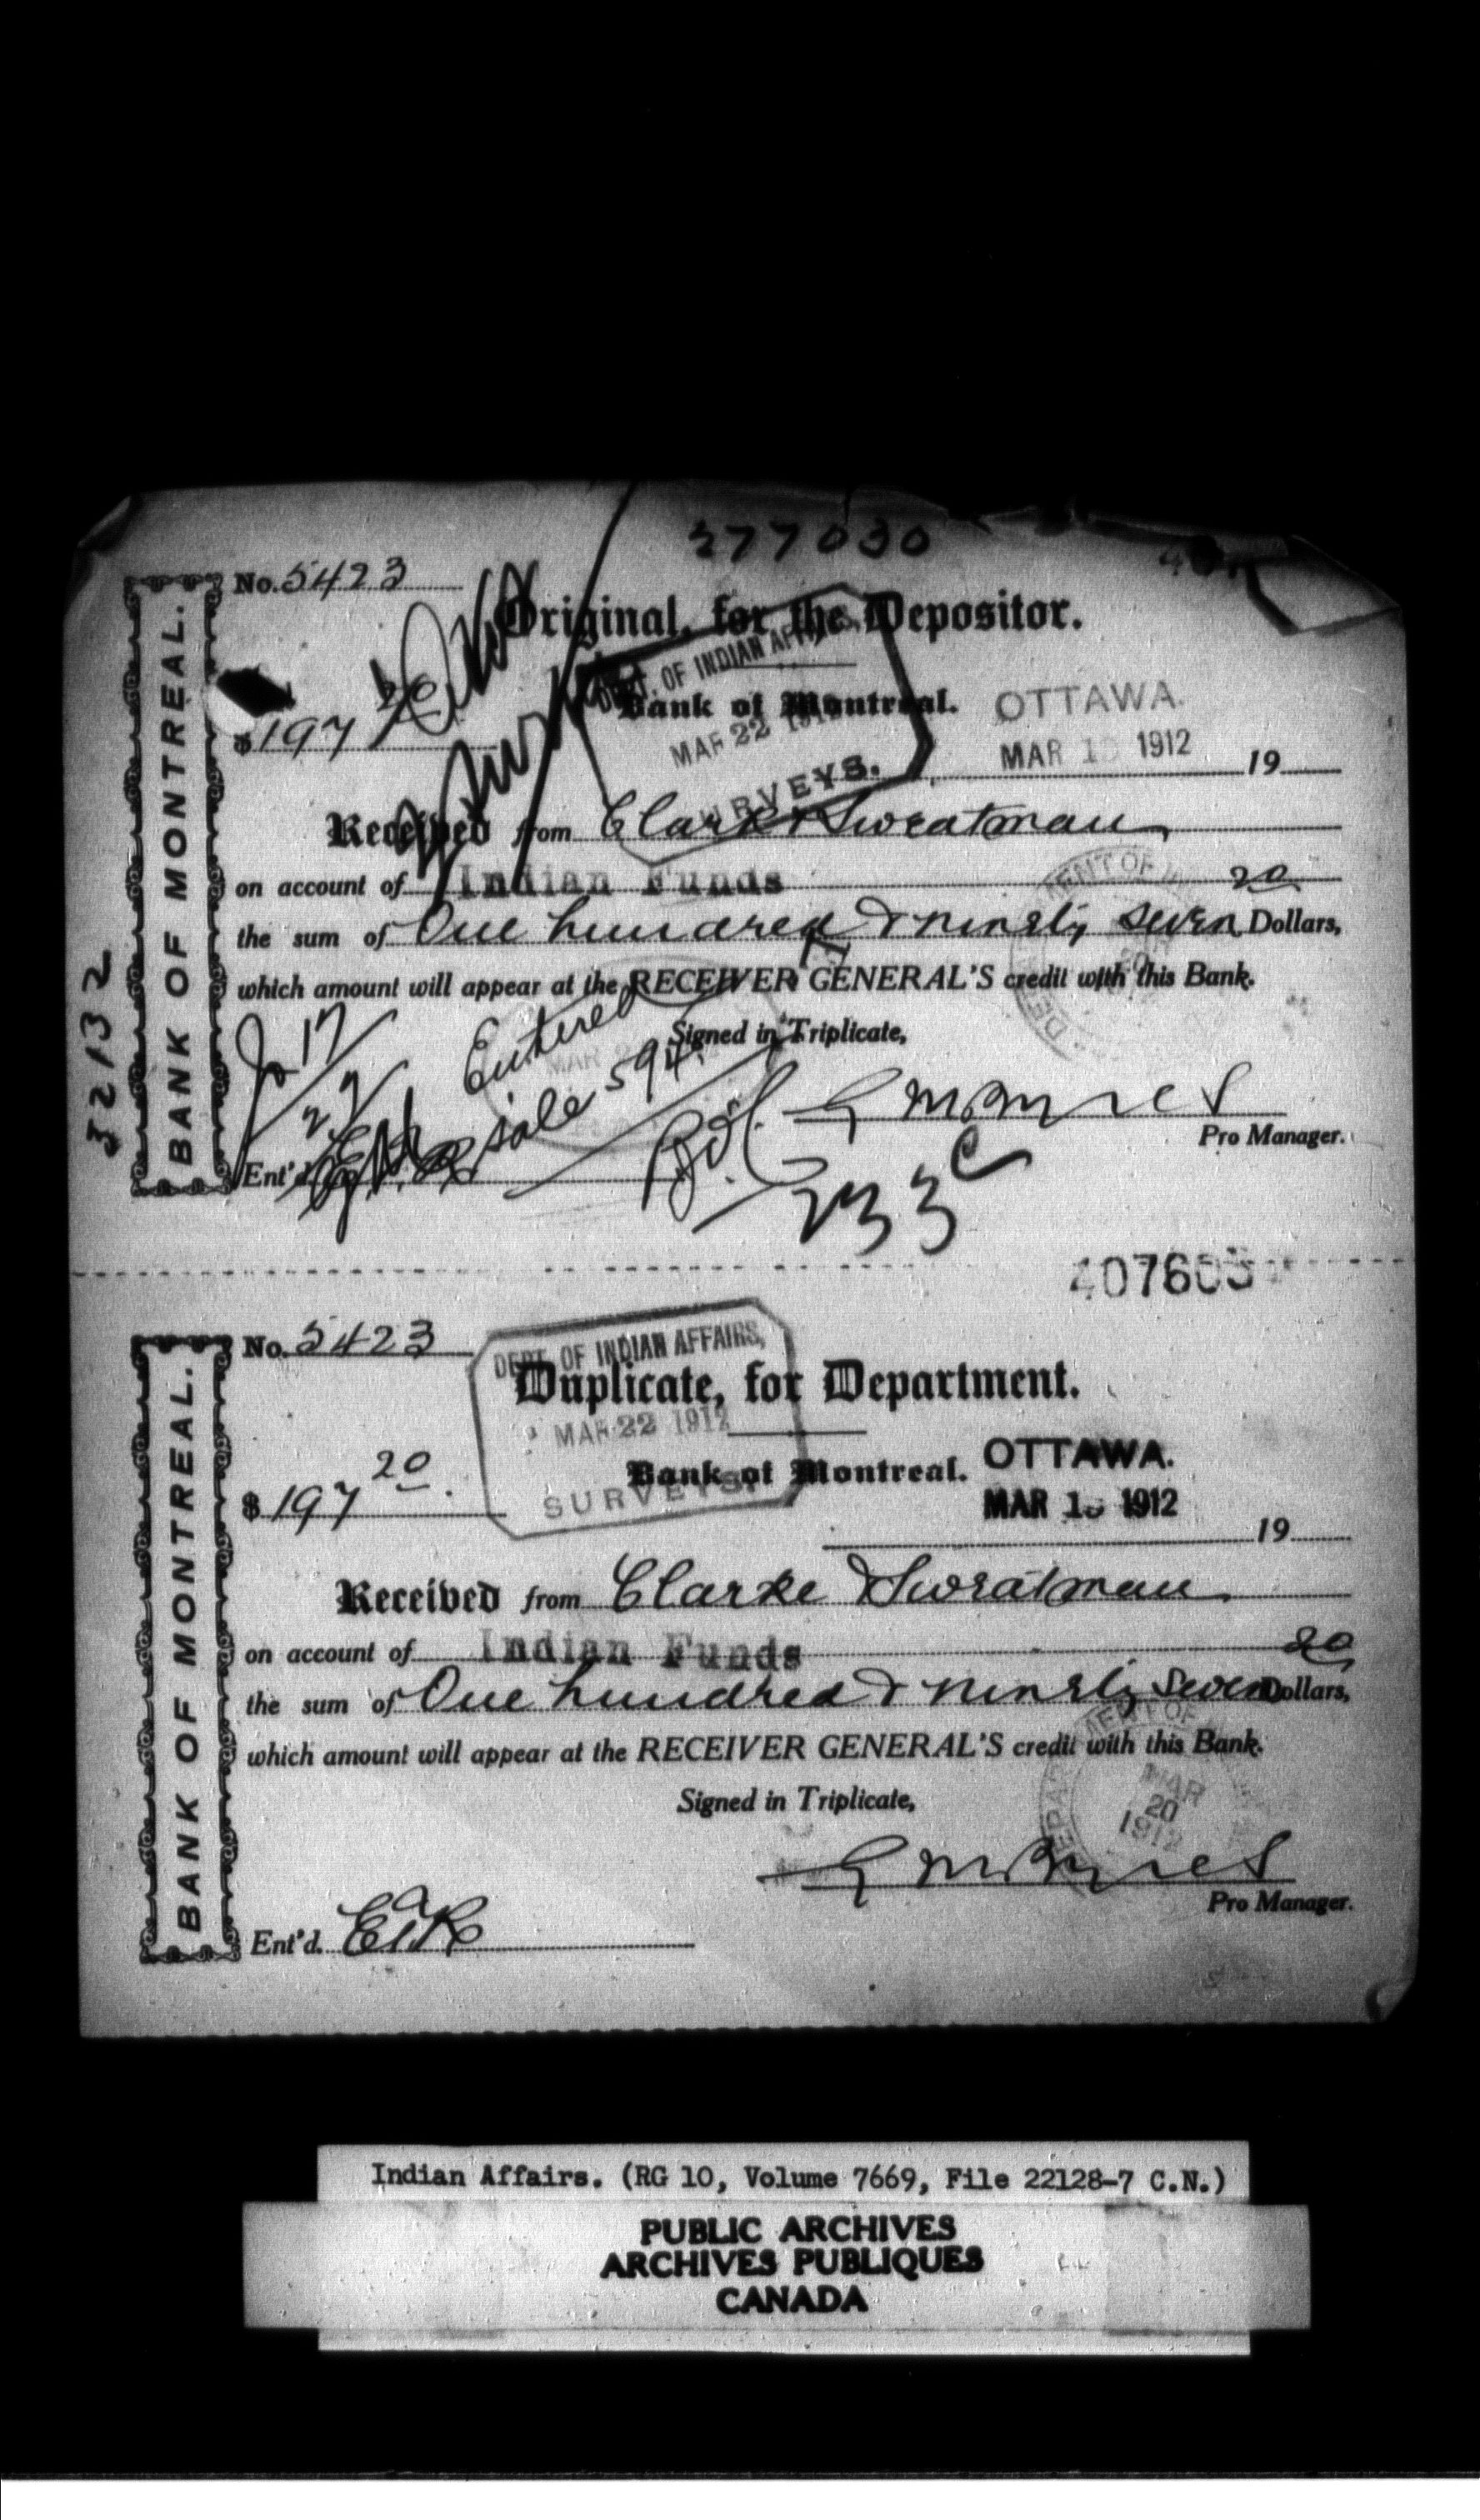 377030
No. 5423
Original, for the Depositor.
DEPT. OF INDIAN AFFAIRS,
MAR 22 1912
SURVEYS.
Bank of Montreal.
OTTAWA.
MAR 1 1912
$197 20
19
Received from Clarke & Sweatman
on account of Indian Funds
20
the sum of One hundred & ninety seven Dollars,
which amount will appear at the RECEIVER GENERAL'S credit with this Bank.
Entered
Signed in Triplicate,
sale 594.
Pro Manager.
Ent'd.
233 c
BANK OF MONTREAL.
32132
407605
No. 5423
DEPT. OF INDIAN AFFAIRS,
Duplicate, for Department.
MAR 22 1912
SURVEYS.
Bank of Montreal.
OTTAWA.
MAR 1 1912
$197 20
19
Received from Clarke & Sweatman
on account of Indian Funds
20
the sum of One hundred & ninety seven Dollars,
which amount will appear at the RECEIVER GENERAL'S credit with this Bank.
Signed in Triplicate,
MAR
20
1912
Pro Manager.
Ent'd.
BANK OF MONTREAL.
Indian Affairs. (RG 10, Volume 7669, File 22128-7 C.N.)
PUBLIC ARCHIVES
ARCHIVES PUBLIQUES
CANADA